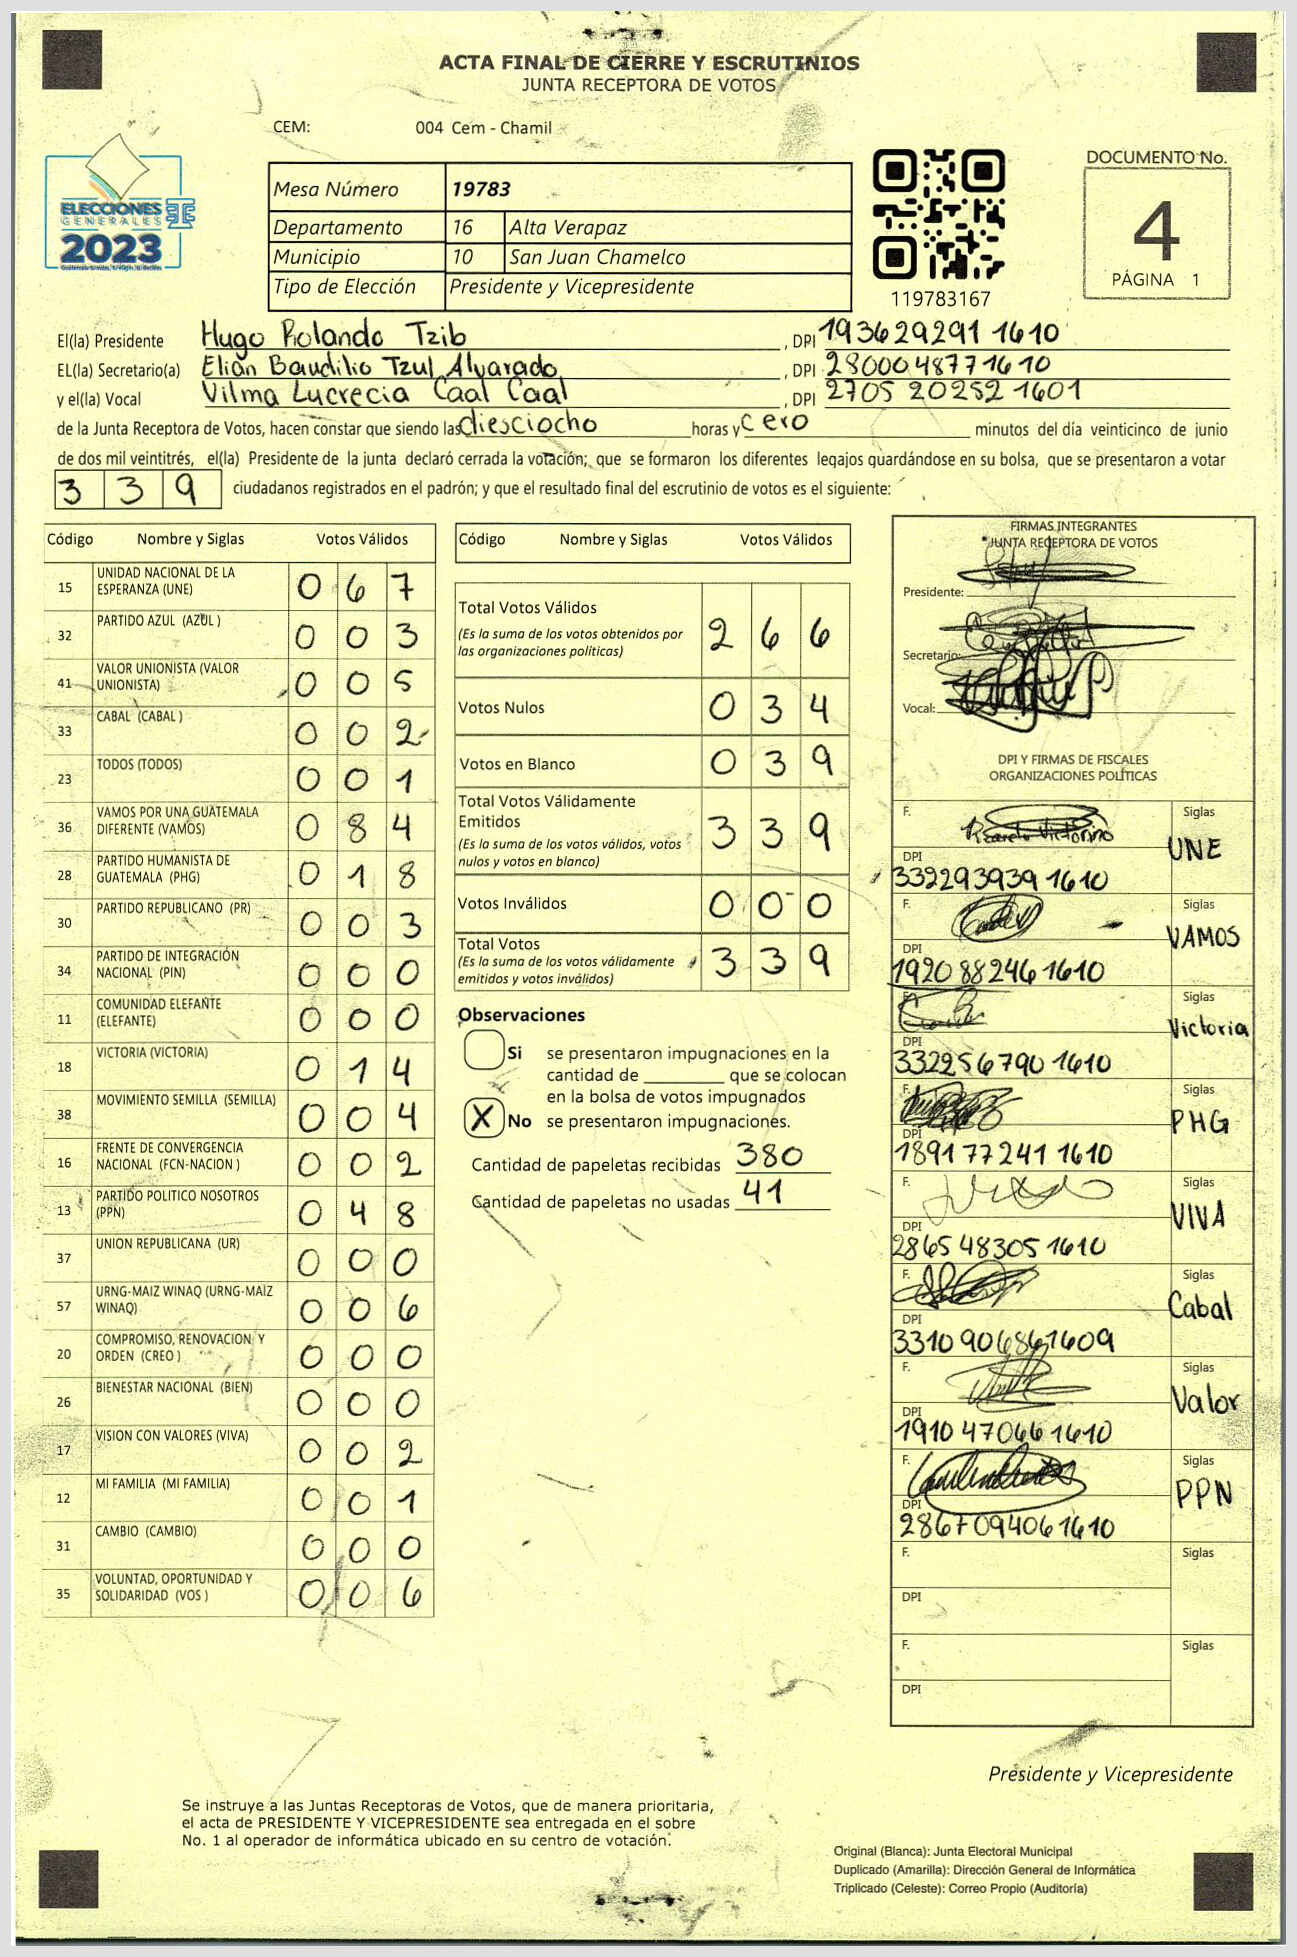 ACTA FINAL DE CIERRE Y ESCRUTINIOS
JUNTA RECEPTORA DE VOTOS
CEM: 004 Cem - Chamil
ELECCIONES
GENERALES
2023
Mesa Número 19783
Departamento 16 Alta Verapaz
Municipio 10 San Juan Chamelco
Tipo de Elección Presidente y Vicepresidente
119783167
DOCUMENTO No.
4
PÁGINA 1
El(la) Presidente Hugo Rolando Tzib , DPI 193629291 1610
EL(la) Secretario(a) Elian Baudilio Tzul Alvarado , DPI 2800048771610
y el(la) Vocal Vilma Lucrecia Caal Caal , DPI 2705 20252 1601
de la Junta Receptora de Votos, hacen constar que siendo las diesciocho horas y cero minutos del día veinticinco de junio
de dos mil veintitrés, el(la) Presidente de la junta declaró cerrada la votación; que se formaron los diferentes legajos guardándose en su bolsa, que se presentaron a votar
3 3 9 ciudadanos registrados en el padrón; y que el resultado final del escrutinio de votos es el siguiente:
Código Nombre y Siglas Votos Válidos
15 UNIDAD NACIONAL DE LA ESPERANZA (UNE) 0 6 7
32 PARTIDO AZUL (AZUL ) 0 0 3
41 VALOR UNIONISTA (VALOR UNIONISTA) 0 0 5
33 CABAL (CABAL ) 0 0 2
23 TODOS (TODOS) 0 0 1
36 VAMOS POR UNA GUATEMALA DIFERENTE (VAMOS) 0 8 4
28 PARTIDO HUMANISTA DE GUATEMALA (PHG) 0 1 8
30 PARTIDO REPUBLICANO (PR) 0 0 3
34 PARTIDO DE INTEGRACIÓN NACIONAL (PIN) 0 0 0
11 COMUNIDAD ELEFANTE (ELEFANTE) 0 0 0
18 VICTORIA (VICTORIA) 0 1 4
38 MOVIMIENTO SEMILLA (SEMILLA) 0 0 4
16 FRENTE DE CONVERGENCIA NACIONAL (FCN-NACION ) 0 0 2
13 PARTIDO POLITICO NOSOTROS (PPN) 0 4 8
37 UNION REPUBLICANA (UR) 0 0 0
57 URNG-MAIZ WINAQ (URNG-MAIZ WINAQ) 0 0 6
20 COMPROMISO, RENOVACION Y ORDEN (CREO ) 0 0 0
26 BIENESTAR NACIONAL (BIEN) 0 0 0
17 VISION CON VALORES (VIVA) 0 0 2
12 MI FAMILIA (MI FAMILIA) 0 0 1
31 CAMBIO (CAMBIO) 0 0 0
35 VOLUNTAD, OPORTUNIDAD Y SOLIDARIDAD (VOS ) 0 0 6
Código Nombre y Siglas Votos Válidos
Total Votos Válidos 2 6 6
(Es la suma de los votos obtenidos por
las organizaciones políticas)
Votos Nulos 0 3 4
Votos en Blanco 0 3 9
Total Votos Válidamente
Emitidos 3 3 9
(Es la suma de los votos válidos, votos
nulos y votos en blanco)
Votos Inválidos 0 0 0
Total Votos 3 3 9
(Es la suma de los votos válidamente
emitidos y votos inválidos)
Observaciones
Si se presentaron impugnaciones en la
cantidad de ________ que se colocan
en la bolsa de votos impugnados
X No se presentaron impugnaciones.
Cantidad de papeletas recibidas 380
Cantidad de papeletas no usadas 41
FIRMAS INTEGRANTES
JUNTA RECEPTORA DE VOTOS
Presidente:
Secretario:
Vocal:
DPI Y FIRMAS DE FISCALES
ORGANIZACIONES POLÍTICAS
F. Ricardo Victorino Siglas UNE
DPI 332293939 1610
F. Siglas VAMOS
DPI 1920 88246 1610
F. Siglas Victoria
DPI 332256790 1610
F. Siglas PHG
DPI 1891 77241 1610
F. Siglas VIVA
DPI 2865 48305 1610
F. Siglas Cabal
DPI 3310 90686 1609
F. Siglas Valor
DPI 1910 47066 1610
F. Siglas PPN
DPI 2867094061610
F. Siglas
DPI
F. Siglas
DPI
Presidente y Vicepresidente
Se instruye a las Juntas Receptoras de Votos, que de manera prioritaria,
el acta de PRESIDENTE Y VICEPRESIDENTE sea entregada en el sobre
No. 1 al operador de informática ubicado en su centro de votación.
Original (Blanca): Junta Electoral Municipal
Duplicado (Amarilla): Dirección General de Informática
Triplicado (Celeste): Correo Propio (Auditoría)